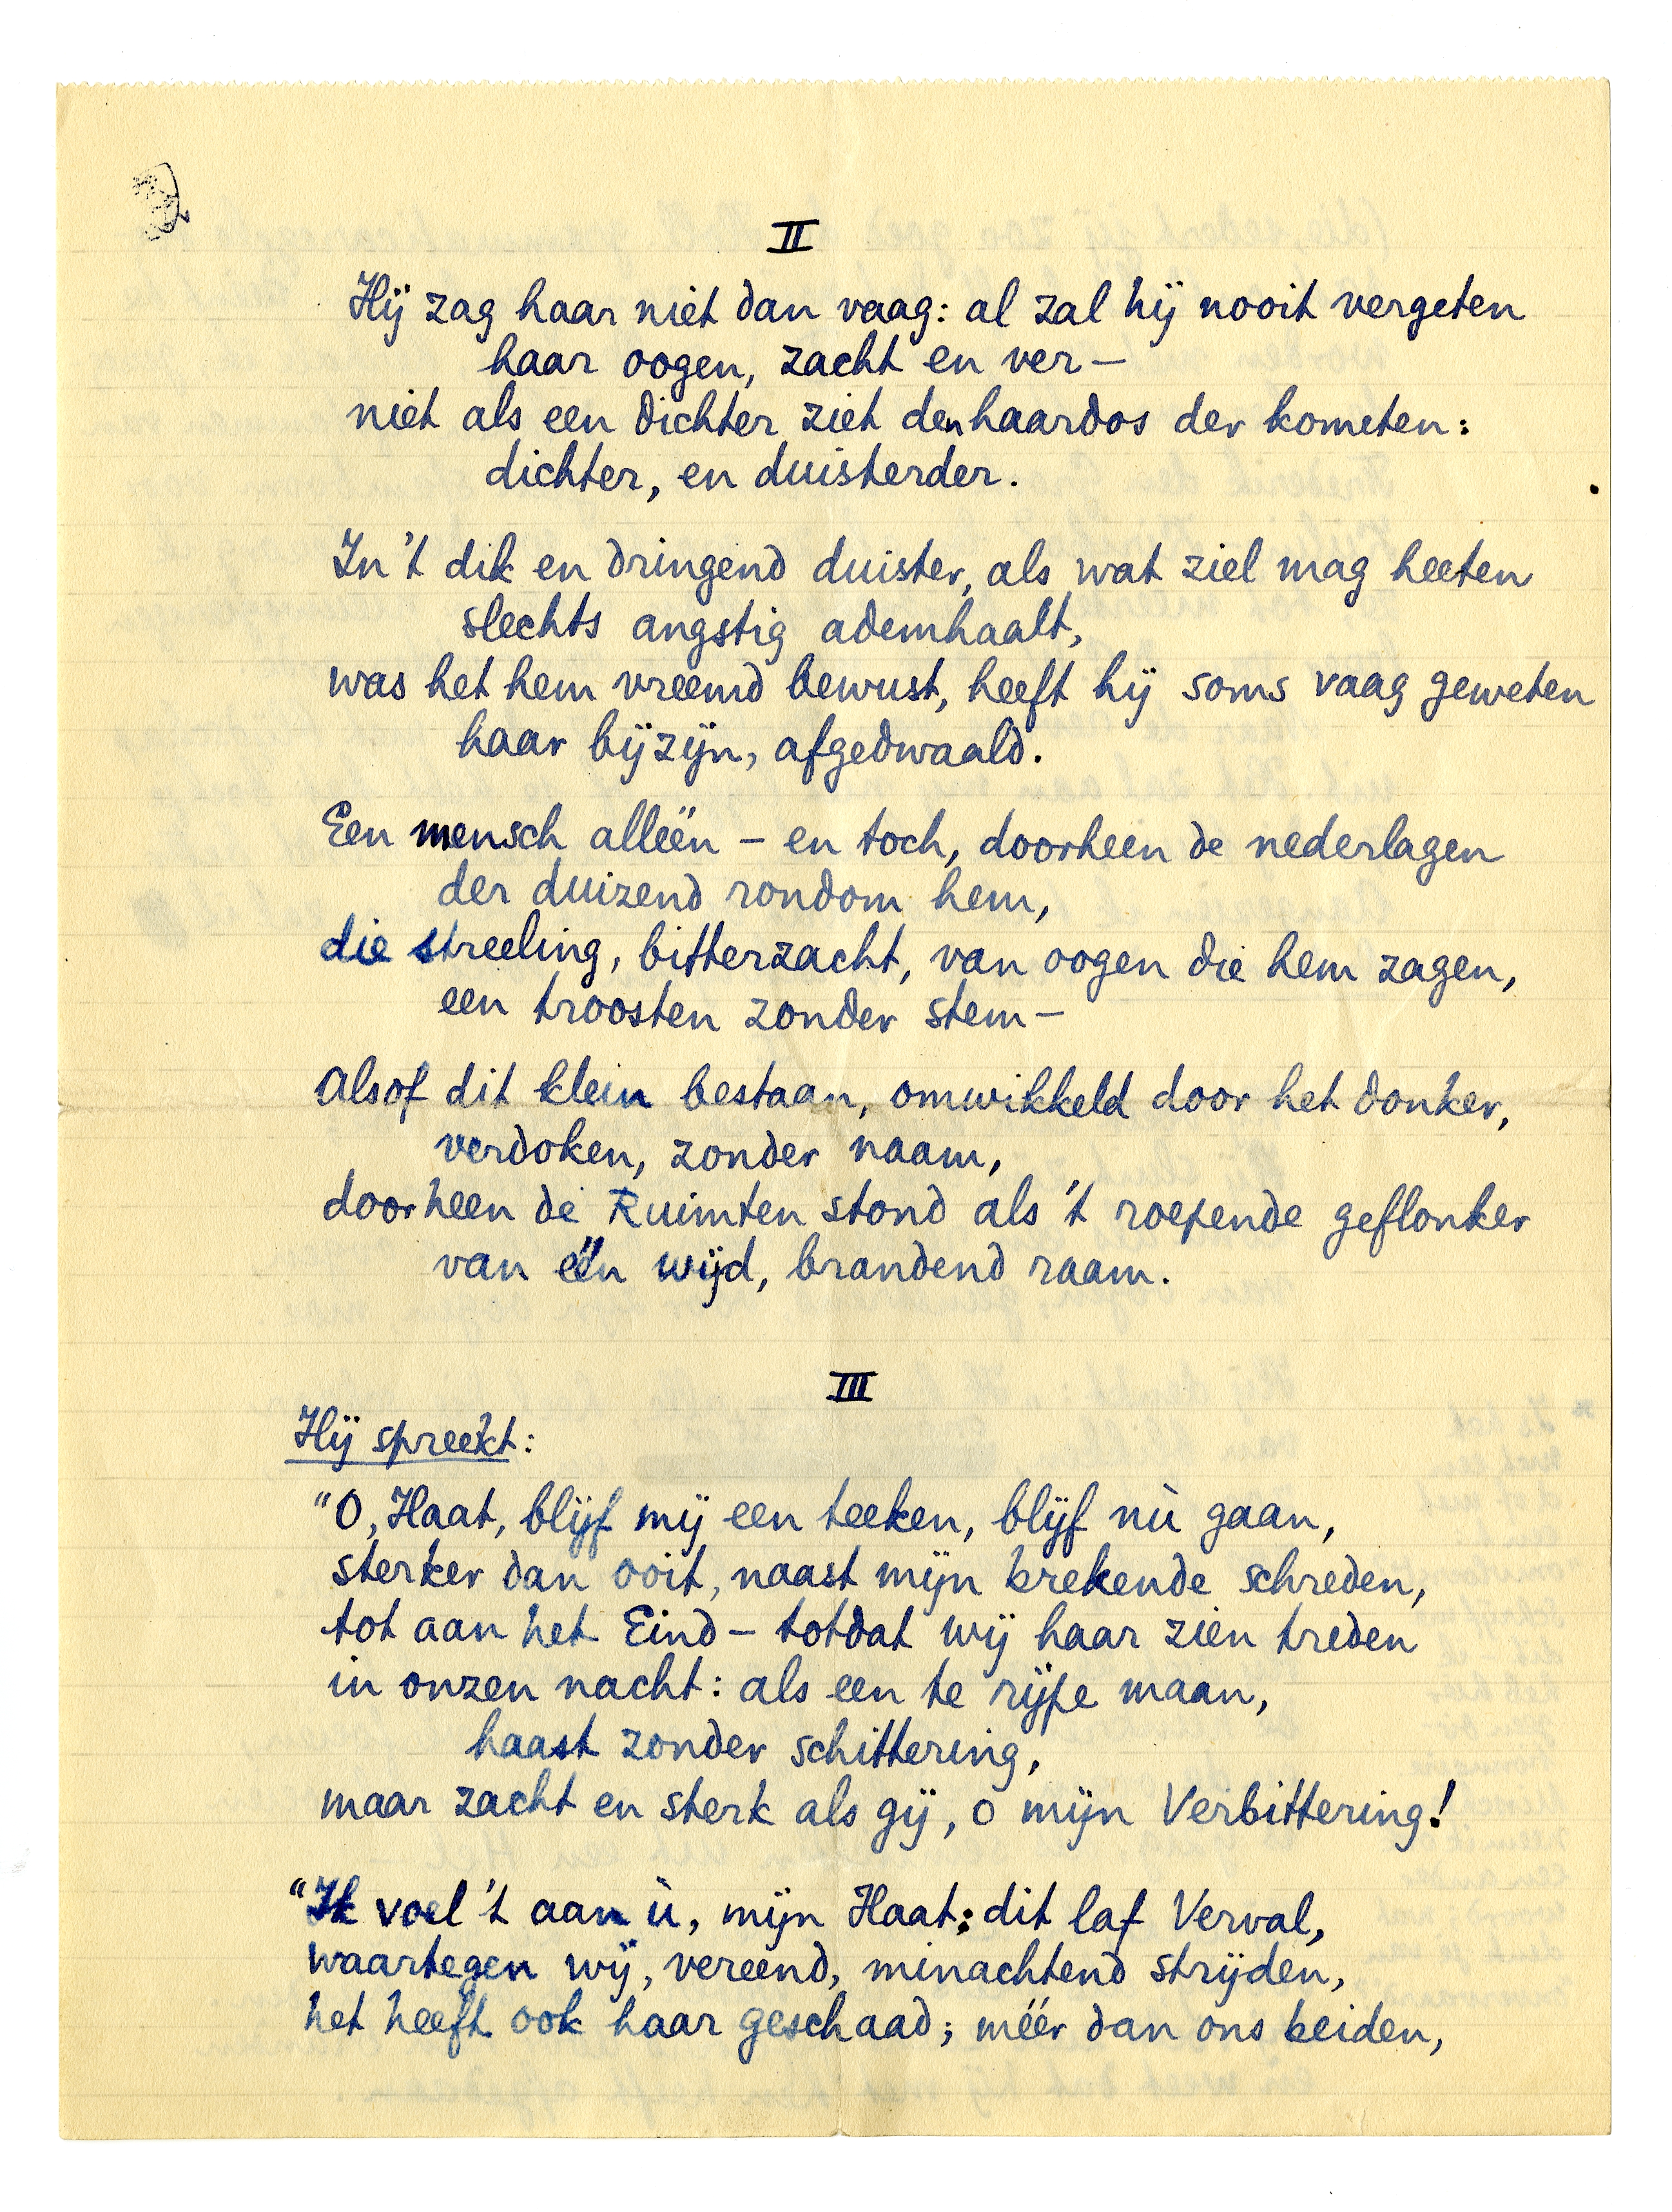 II
Hij zag haar niet dan vaag: al zal hij nooit vergeten
haar oogen, zacht en ver —
niet als een dichter ziet den haardos der kometen:
dichter, en duisterder.
In 't dik en dringend duister, als wat ziel mag heeten
slechts angstig ademhaalt,
was het hem vreemd bewust, heeft hij soms vaag geweten
haar bijzijn, afgedwaald.
Een mensch alléén – en toch, doorheen de nederlagen
der duizend rondom hem,
die streeling, bitterzacht, van oogen die hem zagen,
een troosten zonder stem —
alsof dit klein bestaan, omwikkeld door het donker,
verdoken, zonder naam,
doorheen de Ruimten stond als 't roepende geflonker
van één wijd, brandend raam.
III
Hij spreekt:
"O, Haat, blijf mij een teeken, blijf nù gaan,
sterker dan ooit, naast mijn brekende schreden,
tot aan het Eind – totdat wij haar zien treden
in onzen nacht: als een te rijpe maan,
haast zonder schittering,
maar zacht en sterk als gij, o mijn Verbittering!
"Ik voel 't aan ù, mijn Haat: dit laf Verval,
waartegen wij, vereend, minachtend strijden,
het heeft ook haar geschaad; méér dan ons beiden,